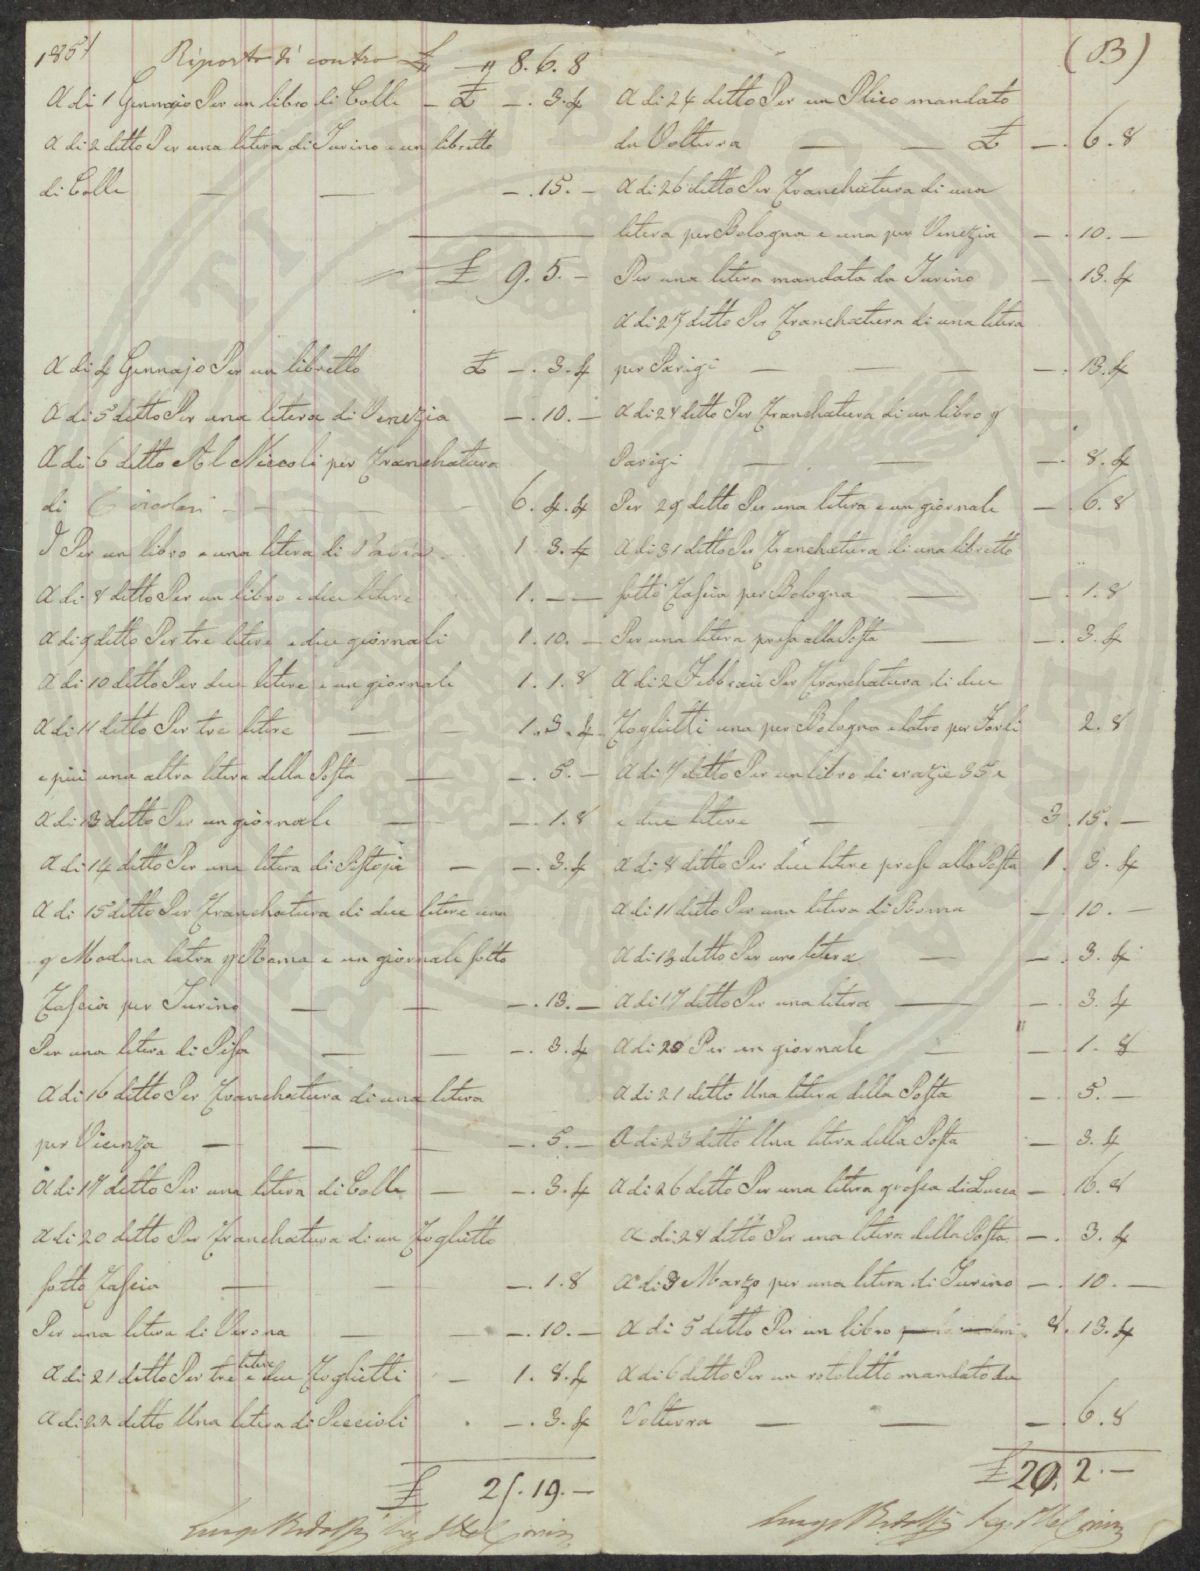 1851
Riporto di contro £ — " 8. 6. 8
A di 1 Gennajo Per un libro di Colle — £ —. 3. 4
A di 2 ditto Per una litera di Turino e un libretto
di Colle — — —. 15. —
£ 9. 5. —
A di 4 Gennajo Per un libretto £ —. 3. 4
A di 5 ditto Per una litera di Venezia —. 10. —
A di 6 ditto Al Niccoli per Franchatura
di Circolari — — 6. 4. 4
Per un libro e una litera di Pavia 1. 3. 4
A di 8 ditto Per un libro e due litere 1. — —
A di 9 ditto Per tre litere e due giornali 1. 10. —
A di 10 ditto Per due litere e un giornale 1. 1. 8
A di 11 ditto Per tre litere — — 1. 3. 4
e piu una altra litera della Posta — —. 5. —
A di 13 ditto Per un giornale — —. 1. 8
A di 14 ditto Per una litera di Pistoja — —. 3. 4
A di 15 ditto Per Franchatura di due litere una
p Modena latra p Roma e un giornale sotto
Fascia per Turino — — —. 13. —
Per una litera di Pisa — — —. 3. 4
A di 16 ditto Per Franchatura di una litera
per Vicenza — — — —. 5. —
A di 17 ditto Per una litera di Colle — —. 3. 4
A di 20 ditto Per Franchatura di un Foglietto
sotto Fascia — — —. 1. 8
Per una litera di Verona — — —. 10. —
A di 21 ditto Per tre litere e due Foglietti — 1. 8. 4
A di 22 ditto Una litera di Peccioli —. 3. 4
£ 21. 19. —
Luigi Ridolfi
(B)
A di 24 ditto Per un Plico mandato
da Volterra — — £ —. 6. 8
A di 26 ditto Per Franchatura di una
litera per Bologna e una per Venezia —. 10. —
Per una litera mandata da Turino —. 13. 4
A di 27 ditto Per Franchatura di una litera
per Parigi — — — —. 13. 4
A di 28 ditto Per Franchatura di un libro p
Parigi — — —. 8. 4
Per 29 ditto Per una litera e un giornale —. 6. 8
A di 31 ditto Per Franchatura di una libretto
sotto Fascia per Bologna — —. 1. 8
Per una litera presa alla Posta — —. 3. 4
A di 2 Febbraie Per Franchatura di due
Foglietti una per Bologna e latro per Forli 2. 8
A di 7 ditto Per un libro di crazie 35 e
e due litere — 3. 15. —
A di 8 ditto Per due litere prese alla Posta 1. 3. 4
A di 11 ditto Per una litera di Roma —. 10. —
A di 13 ditto Per una litera — —. 3. 4
A di 17 ditto Per una litera — —. 3. 4
A di 20 Per un giornale — —. 1. 8
A di 21 ditto Una litera della Posta —. 5. —
A di 23 ditto Una litera della Posta —. 3. 4
A di 26 ditto Per una litera grossa di Lucca —. 16. 8
A di 28 ditto Per una litera della Posta —. 3. 4
A di 3 Marzo per una litera di Turino —. 10. —
A di 5 ditto Per un libro 8. 13. 4
A di 6 ditto Per un rotoletto mandato da
Volterra — — —. 6. 8
£ 20. 2. —
Luigi Ridolfi